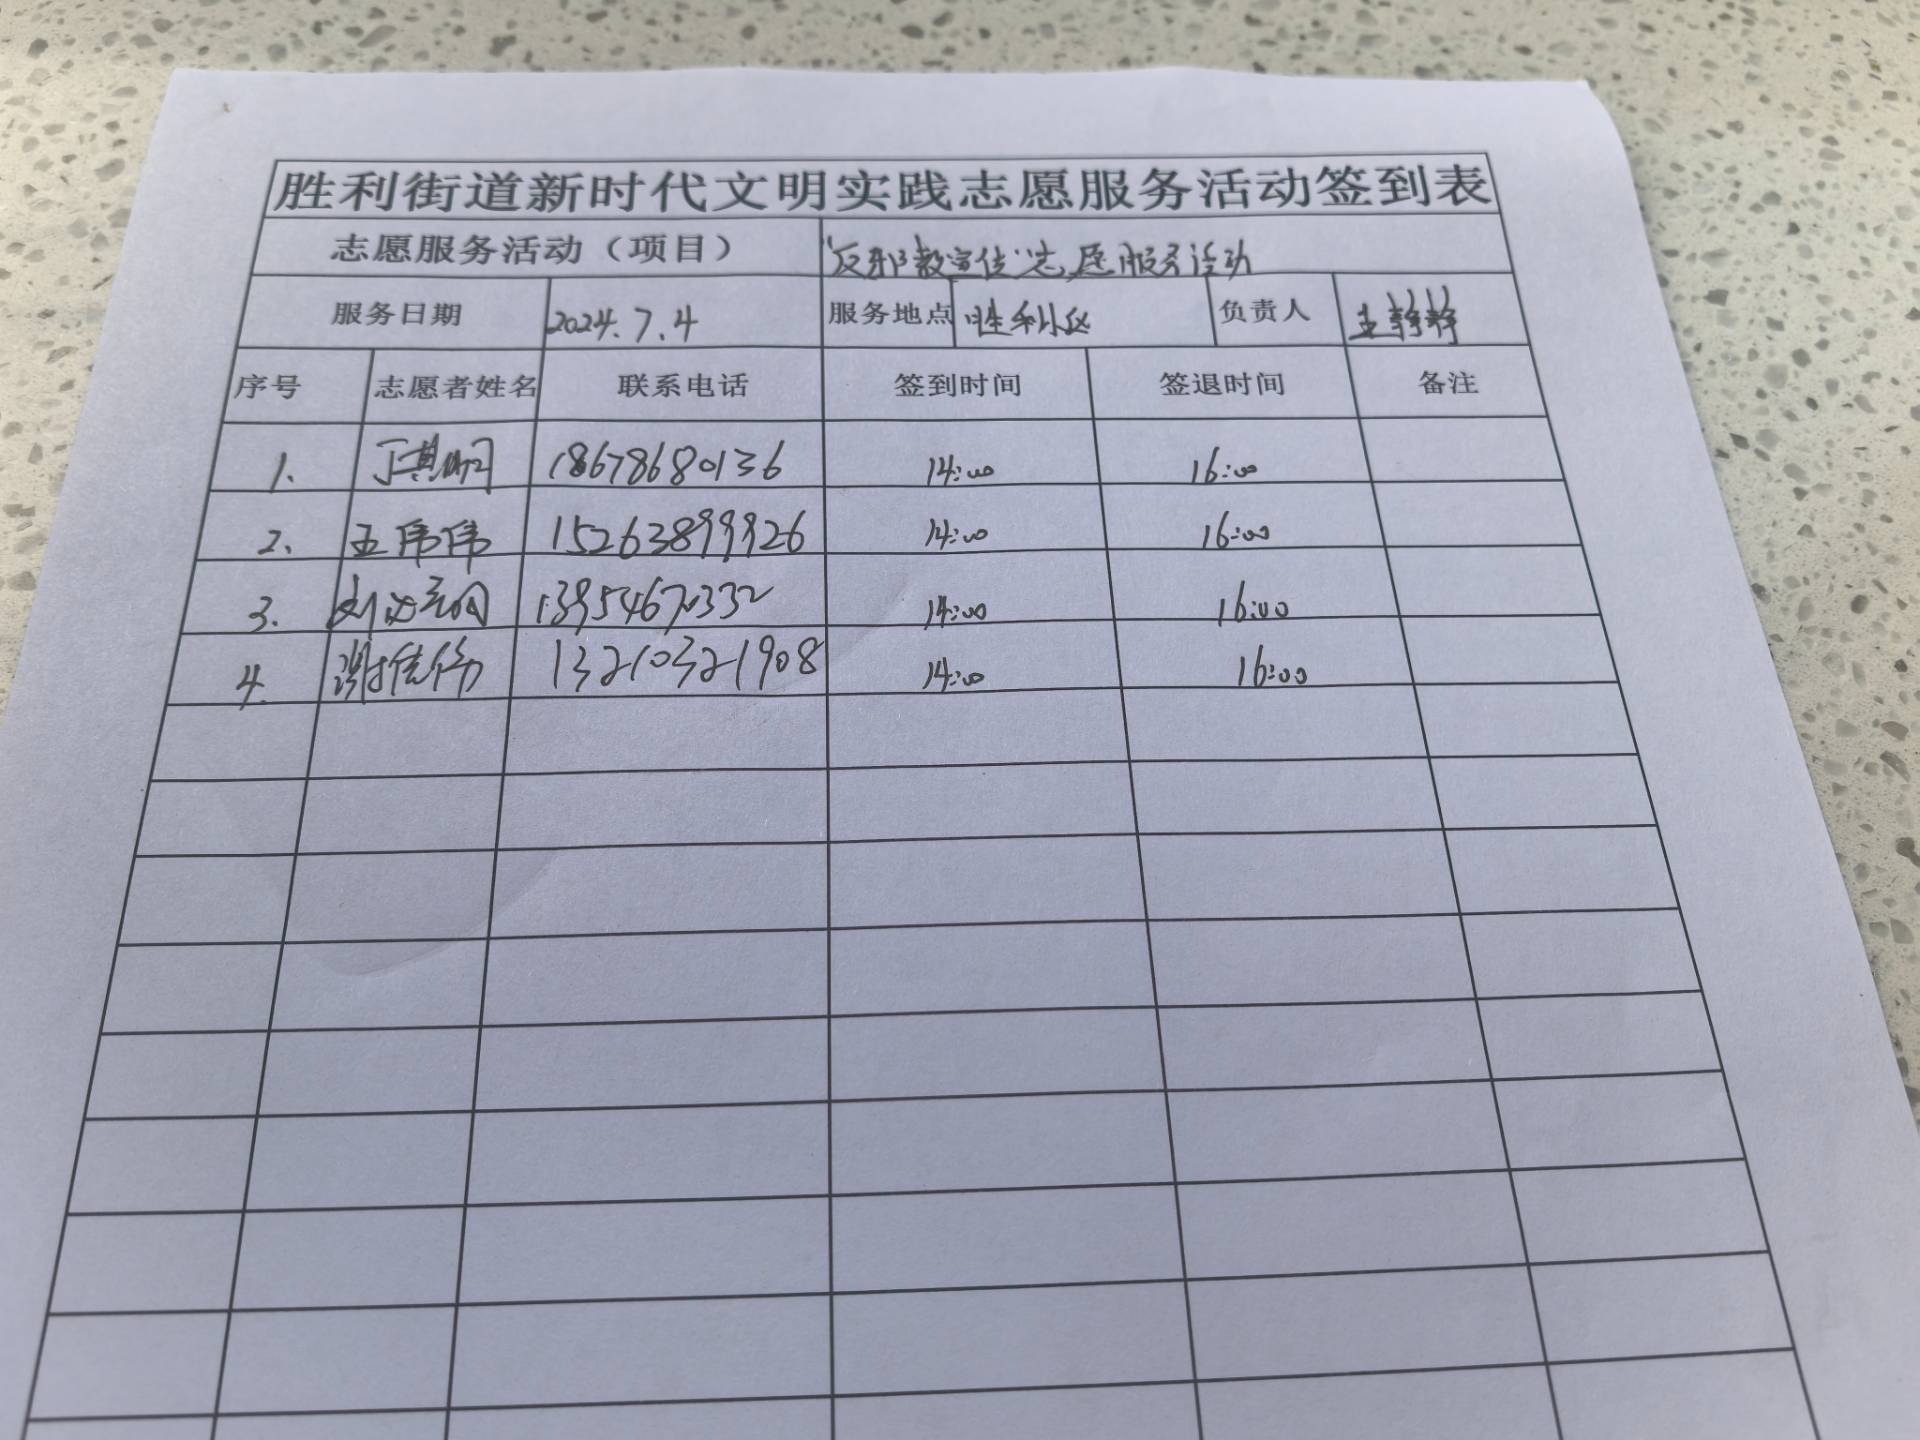 胜利街道新时代文明实践志愿服务活动签到表
志愿服务活动（项目） “反邪教宣传”志愿服务活动
服务日期 2024.7.4 服务地点 胜利社区 负责人 王静静
序号 志愿者姓名 联系电话 签到时间 签退时间 备注
1. 丁其明 18678680136 14:00 16:00
2. 王伟伟 15263899926 14:00 16:00
3. 13954670332 14:00 16:00
4. 谢佳伤 13210321908 14:00 16:00